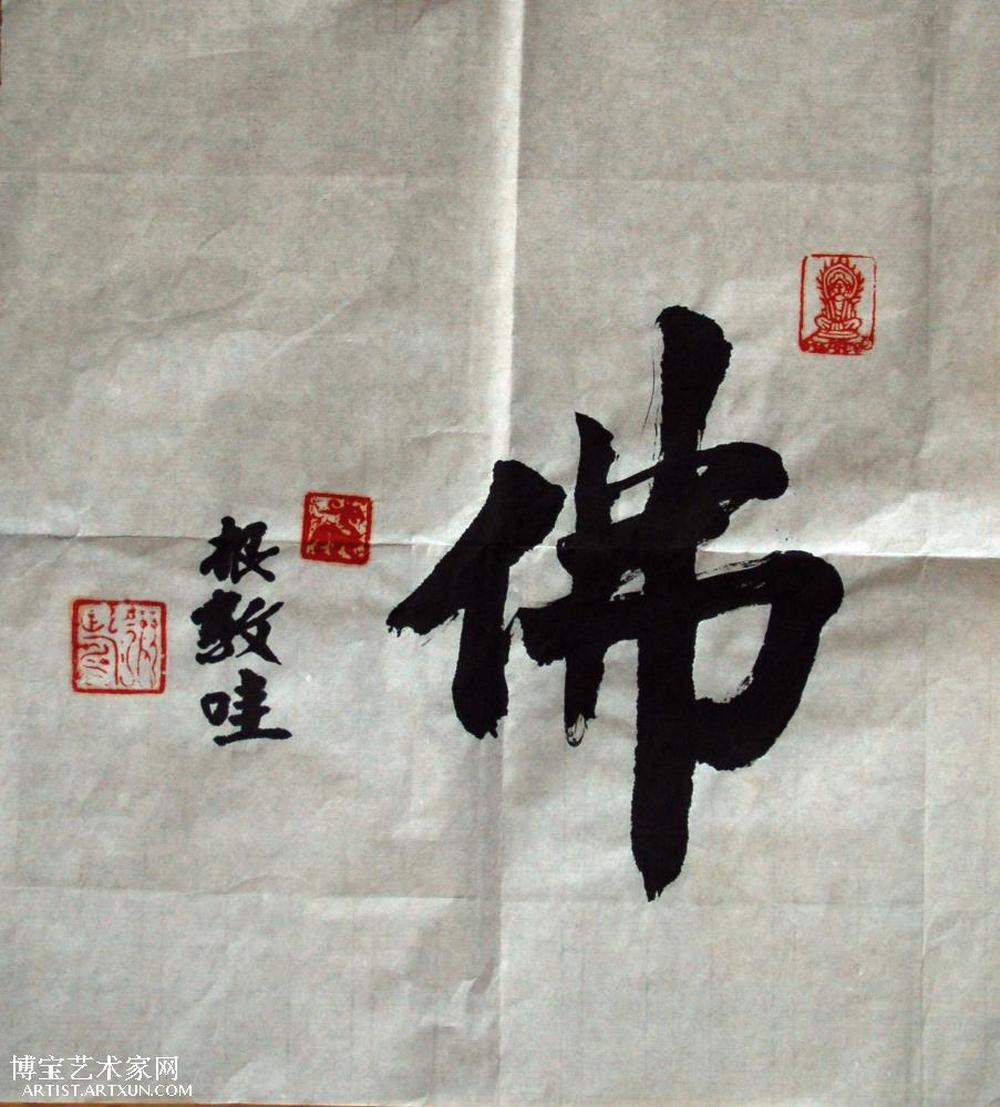 佛
根敦哇
博宝艺术家网
ARTIST.ARTXUN.COM